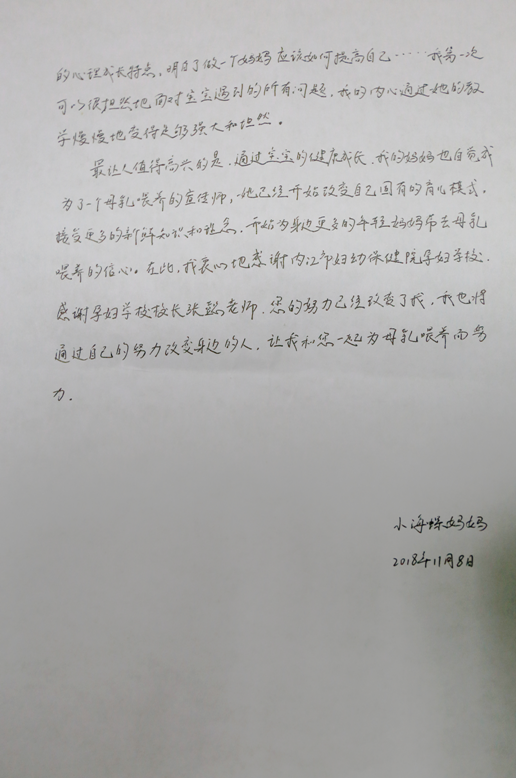 的心理成长特点，明白了做一个妈妈应该如何提高自己……我第一次
可以很坦然地面对宝宝遇到的所有问题，我的内心通过她的教
学慢慢地变得足够强大和坦然。
最让人值得高兴的是，通过宝宝的健康成长，我的妈妈也自觉成
为了一个母乳喂养的宣传师，她已经开始改变自己固有的育儿模式，
接受更多的新鲜知识和理念，开始为身边更多的年轻妈妈带去母乳
喂养的信心。在此，我衷心地感谢内江市妇幼保健院孕妇学校，
感谢孕妇学校校长张老师，您的努力已经改变了我，我也将
通过自己的努力改变身边的人，让我和您一起为母乳喂养而努
力。
小海妈妈
2018年11月8日